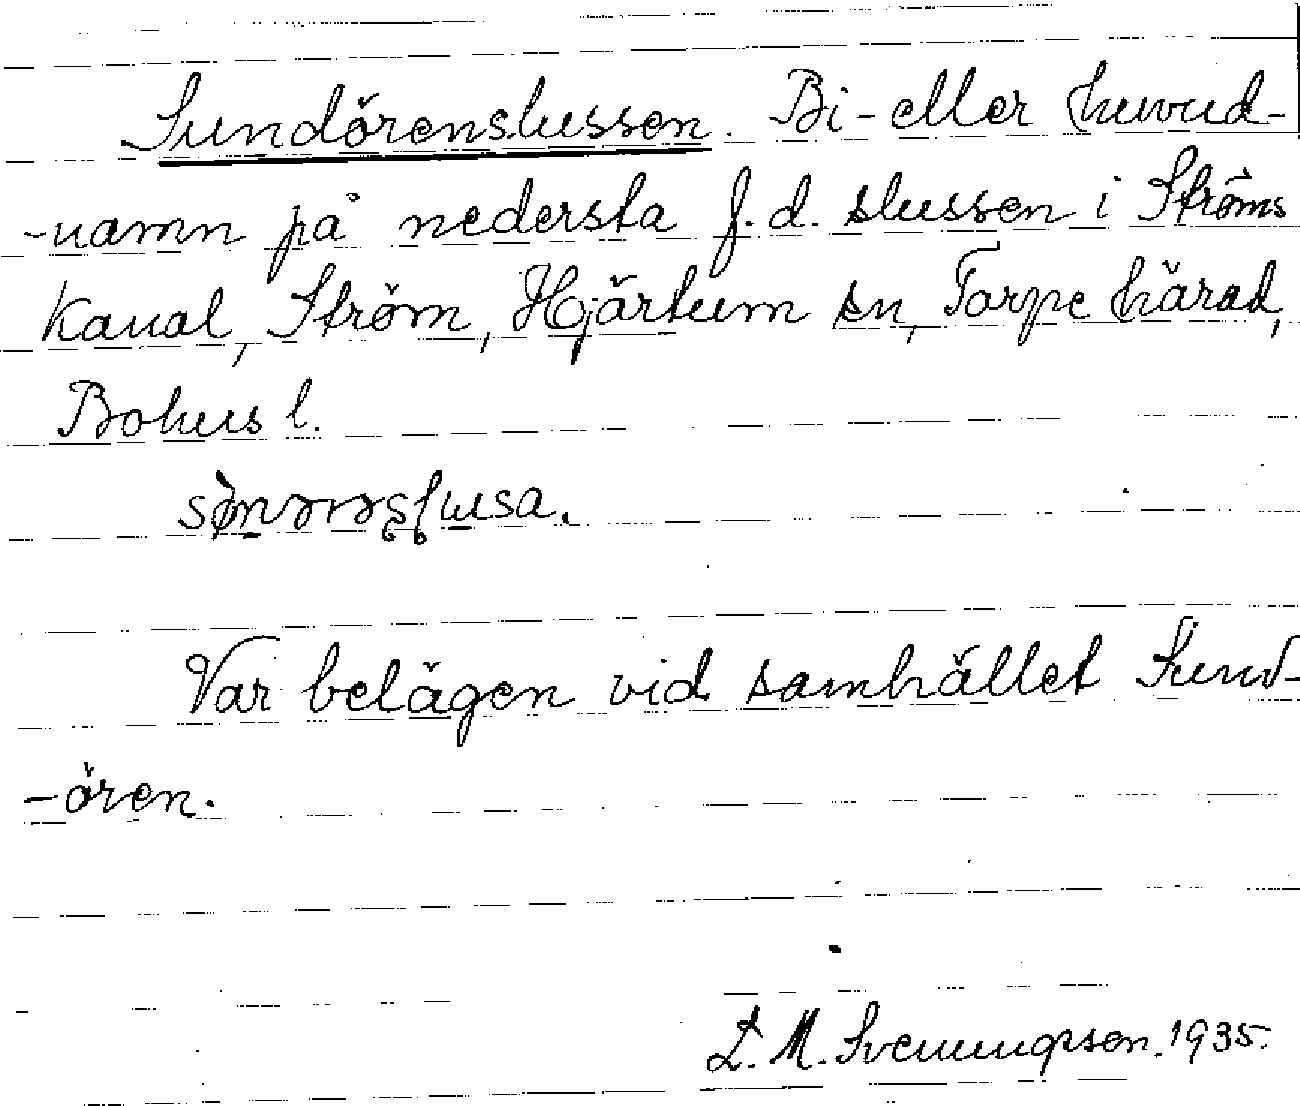 Sundörenslussen. Bi- eller huvud-
-namn på nedersta f.d. slussen i Ströms
Kanal, Ström, Hjärtum sn, Torpe härad,
Bohus l.
Var belägen vid samhället Sund-
-ören.
L. M. Svenungsson. 1935.